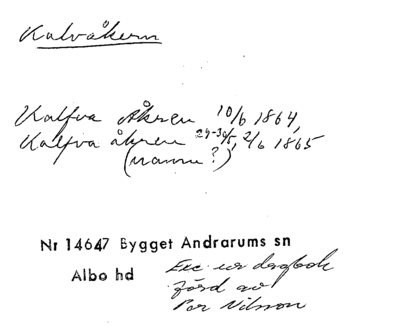 Kalvåkern
Kalfva Åkren 10/6 1864,
Kalfva åkren 29-30/5, 2/6 1865
(namn?)
Nr 14647 Bygget Andrarums sn
Albo hd Exc. ur dagbok
förd av
Per Nilsson